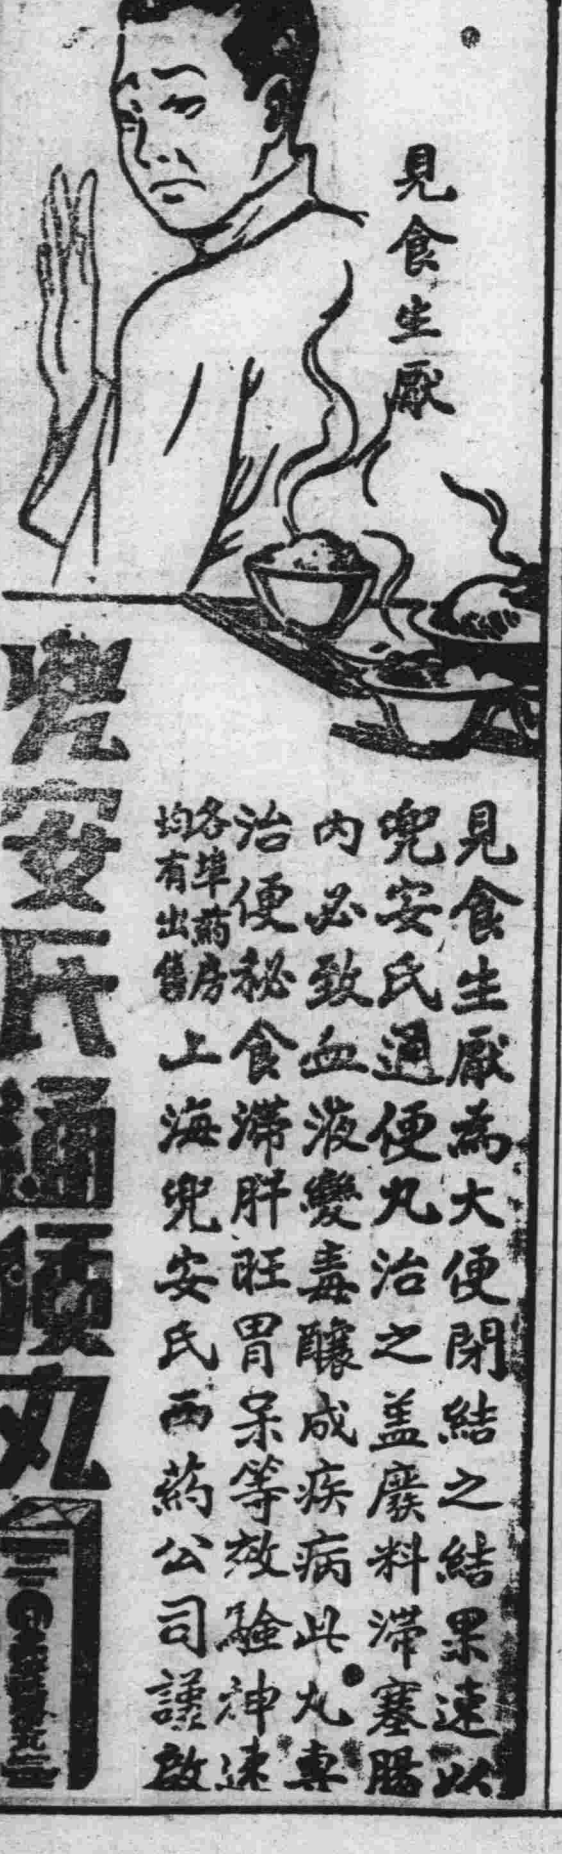 見食生厭
見食生厭為大便閉結之結果速以
兜安氏通便丸治之盖廢料滯塞腸
內必致血液變毒釀成疾病此丸專
治便秘食滯胖旺胃呆等效驗神速
各埠葯房
均有出售
上海兜安氏西葯公司謹啟
兜安氏通便丸